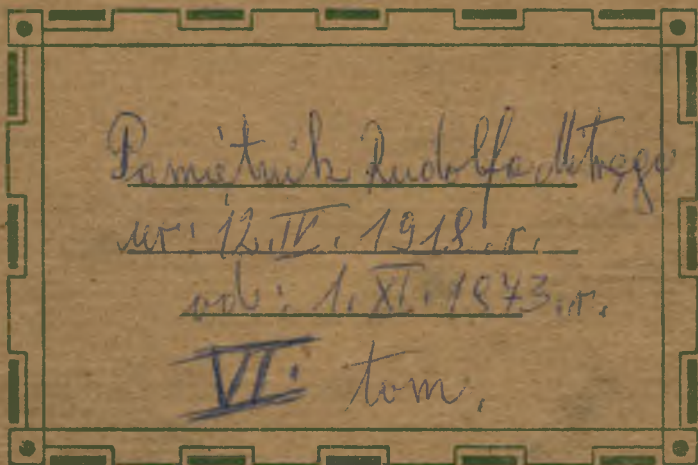 Pamiętnik Rudolfa Mitręgi
ur: 12.IV. 1918.r.
od: 1.XI.1973.r.
VI. tom.